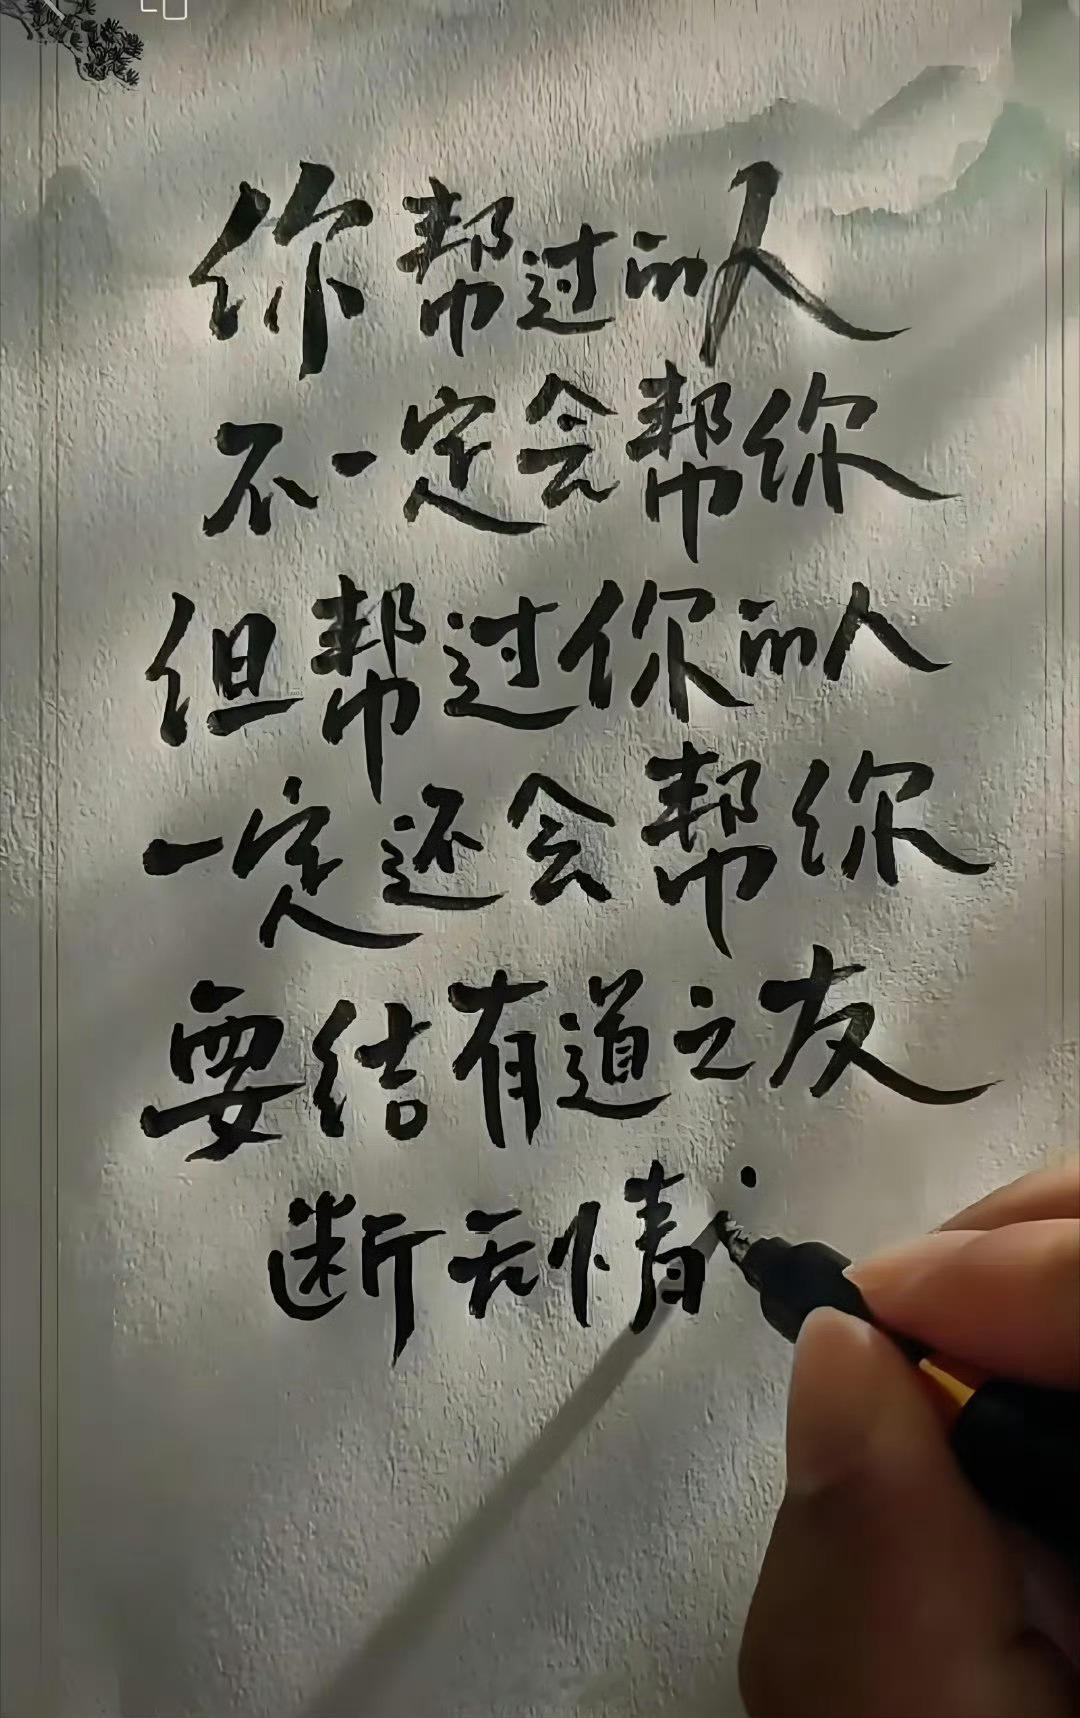 你帮过的人
不一定会帮你
但帮过你的人
一定还会帮你
要结有道之友
断无情